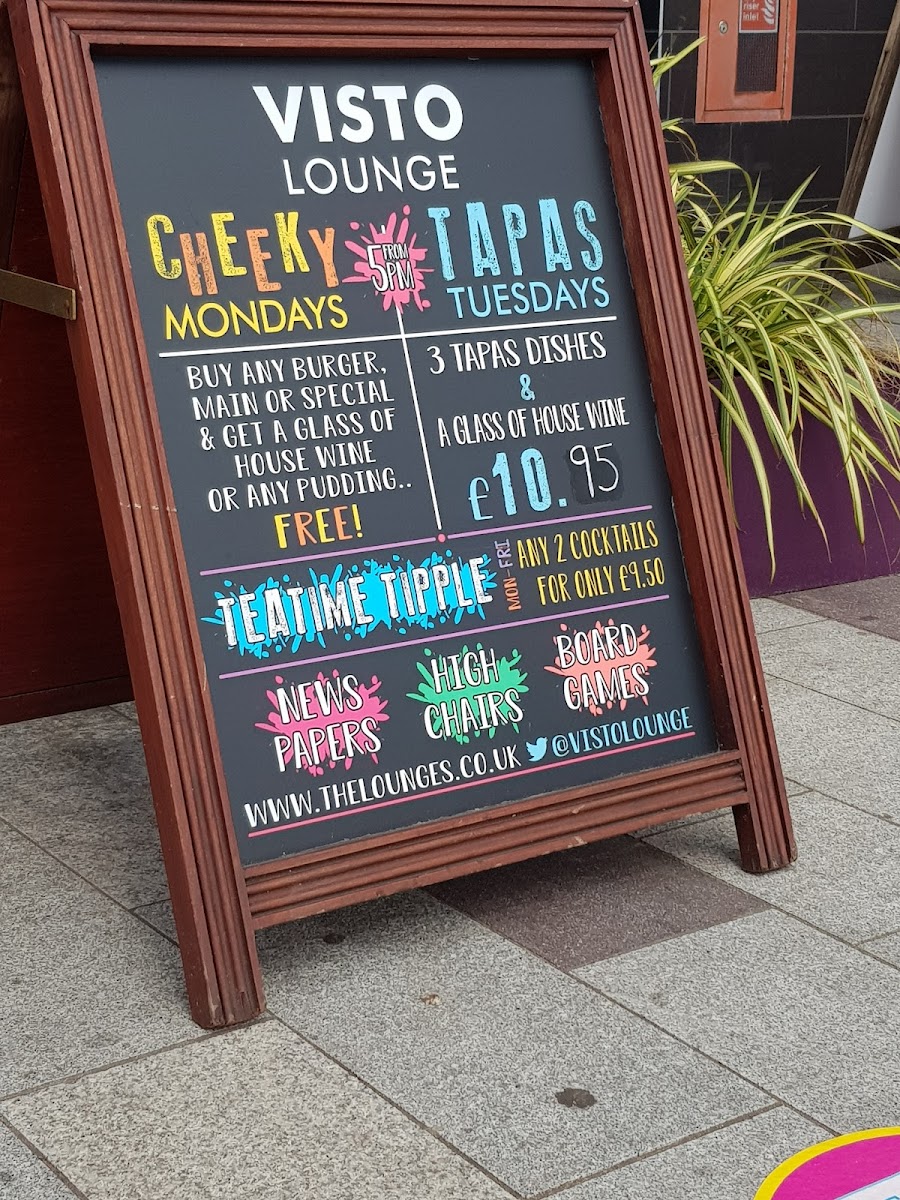 riser
inlet
VISTO
LOUNGE
CHEEKY
MONDAYS
FROM
5PM
TAPAS
TUESDAYS
BUY ANY BURGER,
MAIN OR SPECIAL
& GET A GLASS OF
HOUSE WINE
OR ANY PUDDING..
FREE!
3 TAPAS DISHES
&
A GLASS OF HOUSE WINE
£10.95
TEATIME TIPPLE
MON-FRI
ANY 2 COCKTAILS
FOR ONLY £9.50
NEWS
PAPERS
HIGH
CHAIRS
BOARD
GAMES
WWW.THELOUNGES.CO.UK @VISTOLOUNGE